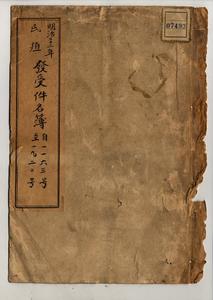 明治三十三年
民殖 發受件名簿 自一一六三号
至一九二〇号
07493